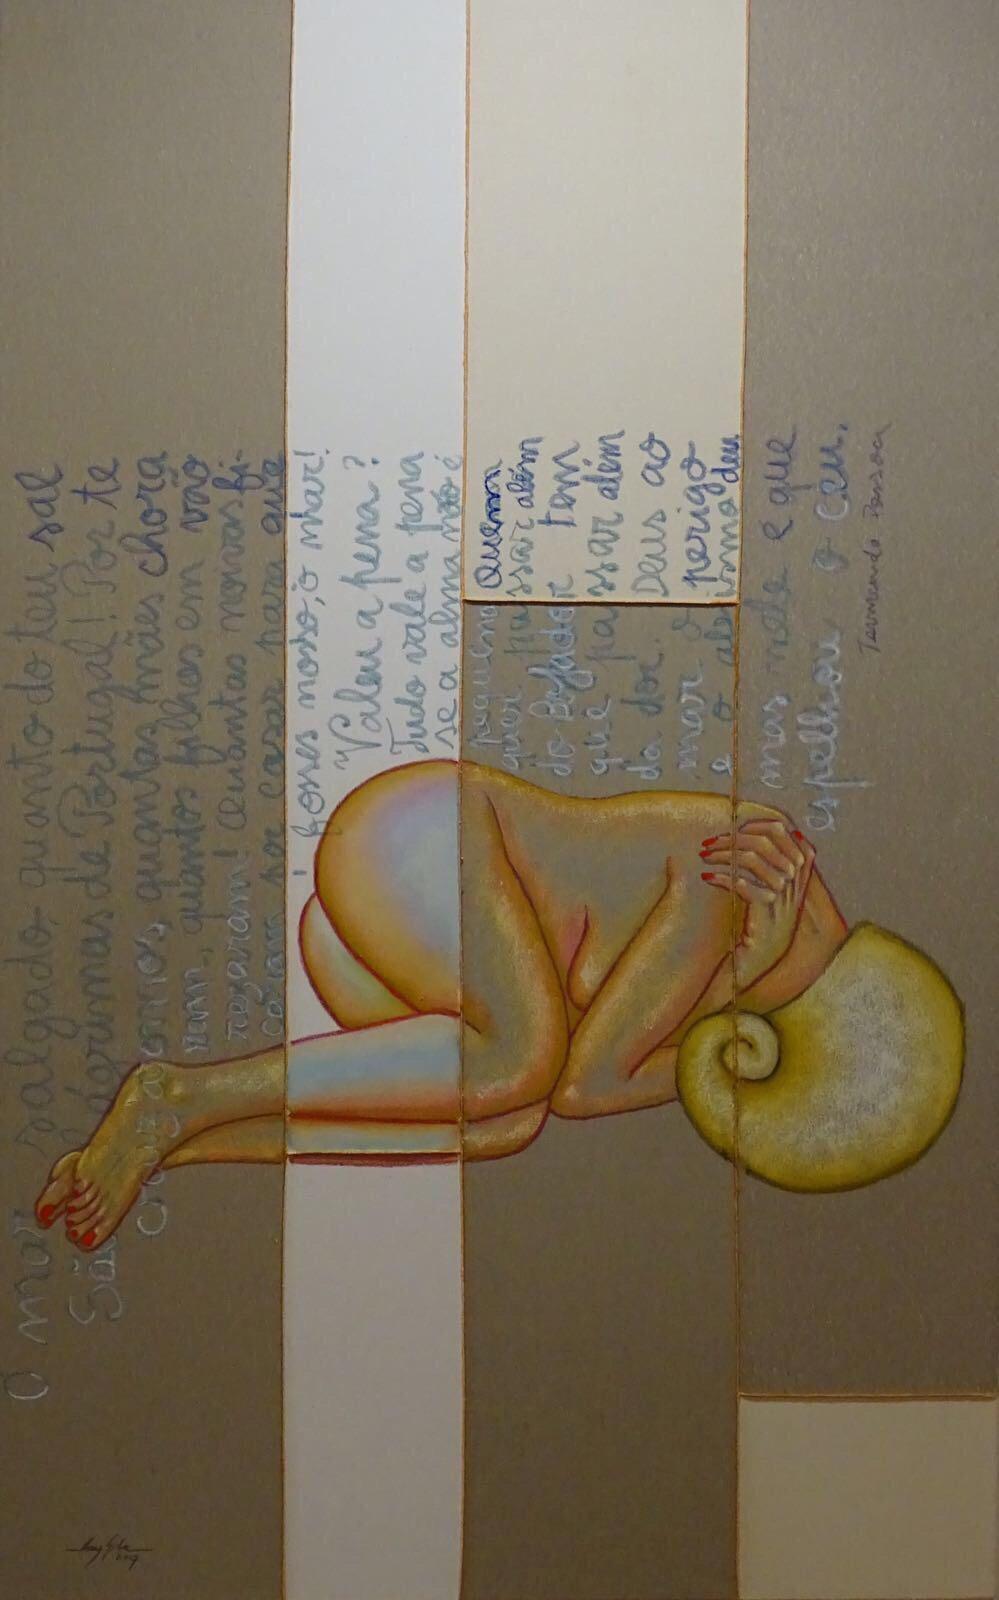 Ó mar salgado, quanto do teu sal
São lágrimas de Portugal! Por te
cruzarmos, quantas mães chora
ram, quantos filhos em vão
rezaram! Quantas noivas fi-
caram por casar para que
fosses nosso, ó mar!
Valeu a pena?
Tudo vale a pena
se a alma não é
pequena Quem
quer passar além
do Bojador tem
que passar além
da dor. Deus ao
mar o perigo
e o abismo deu
mas nele é que
espelhou o céu.
Fernando Pessoa